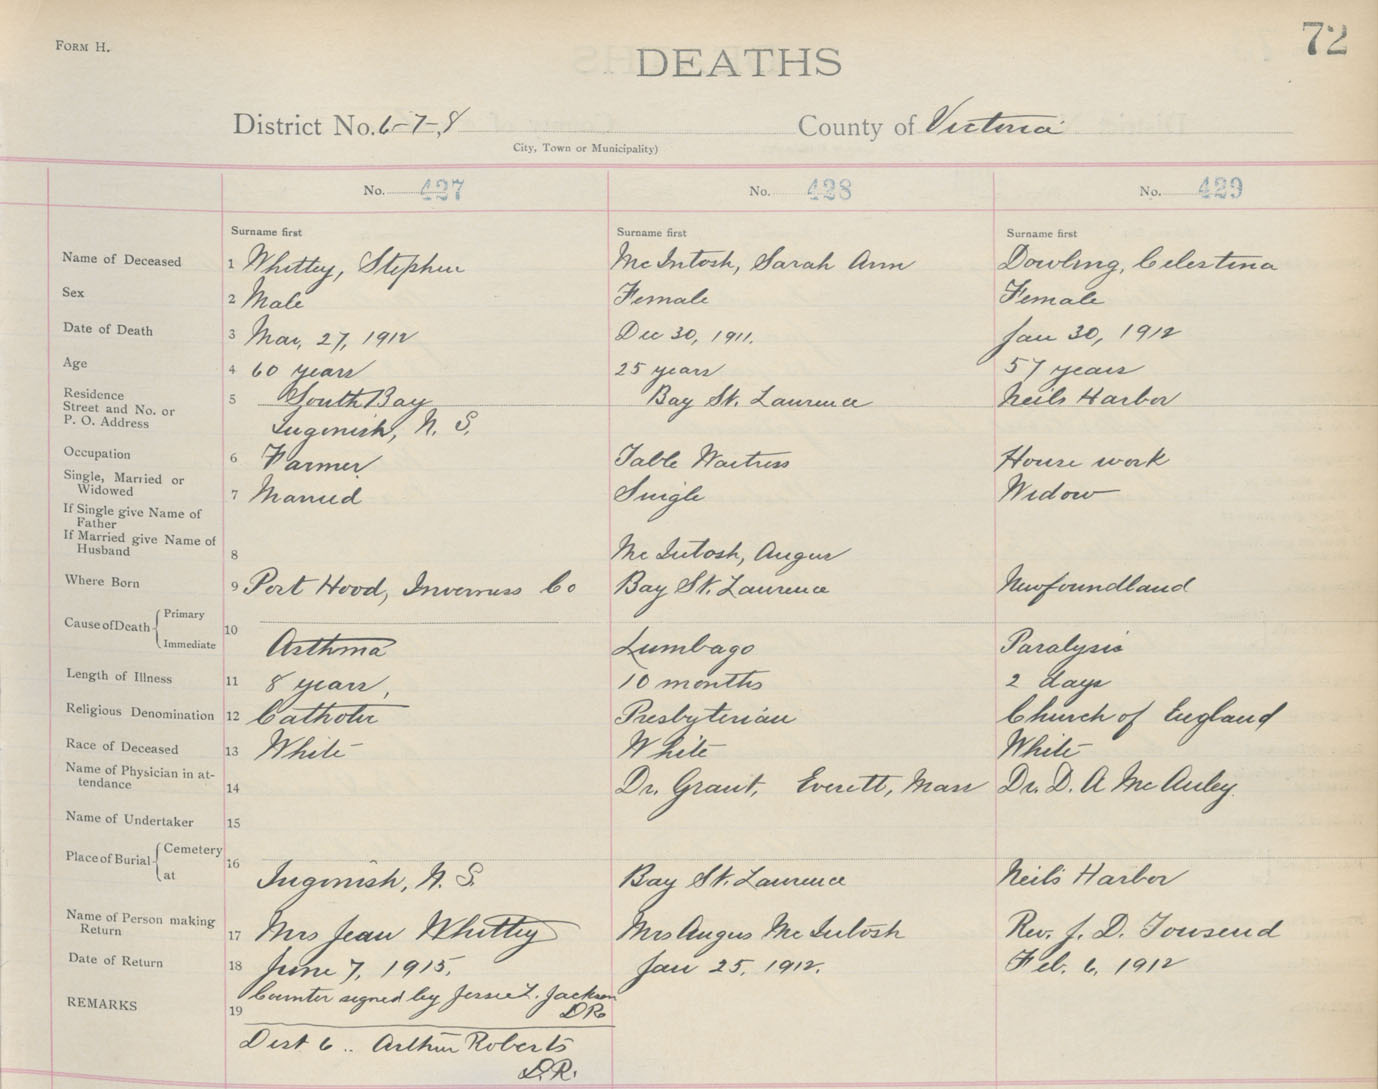 FORM H.
72
DEATHS
District No. 6-7-8 County of Victoria
City, Town or Municipality)
No. 427 No. 428 No. 429
Surname first Surname first Surname first
Name of Deceased 1 Whittey, Stephen McIntosh, Sarah Ann Dowling, Celestina
Sex 2 Male Female Female
Date of Death 3 Mar, 27, 1912 Dec 30, 1911. Jan 30, 1912
Age 4 60 years 25 years 57 years
Residence
Street and No. or 5 South Bay Bay St. Laurence Neils Harbor
P. O. Address
Ingonish, N. S.
Occupation 6 Farmer Table Waitress House work
Single, Married or
Widowed 7 Married Single Widow
If Single give Name of
Father
If Married give Name of
Husband 8 McIntosh, Angus
Where Born 9 Port Hood, Inverness Co Bay St. Laurence Newfoundland
Cause of Death Primary
10
Immediate Asthma Lumbago Paralysis
Length of Illness 11 8 years, 10 months 2 days
Religious Denomination 12 Catholic Presbyterian Church of England
Race of Deceased 13 White White White
Name of Physician in at-
tendance 14 Dr. Grant, Everett, Mass Dr. D. A McAuley.
Name of Undertaker 15
Place of Burial Cemetery
16
at Ingonish, N. S. Bay St. Laurence Neils Harbor
Name of Person making
Return 17 Mrs Jean Whittey Mrs Angus McIntosh Rev. J. D. Tousend
Date of Return 18 June 7, 1915. Jan 25, 1912. Feb. 6, 1912
REMARKS 19 Counter signed by Jessie L. Jackson
DR
Dist 6 .. Arthur Roberts
D.R.